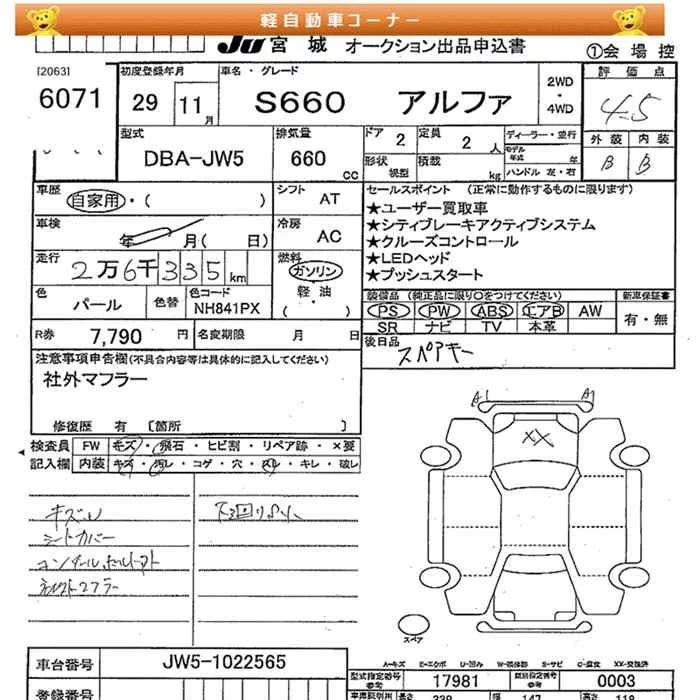 軽自動車コーナー
JU 宮城 オークション出品申込書 ①会場控
[2063] 初度登録年月 車名・グレード 2WD・4WD 評価点
6071 29 11月 S660 アルファ 4.5
型式 排気量 ドア 2 定員 2人 ディーラー・並行 外装 内装
DBA-JW5 660 CC 形状 視型 積載 kg モデル年式 年 ハンドル 左・右 B B
車歴 自家用・( ) シフト AT セールスポイント (正常に動作するものに限ります)
車検 年 月( 日) 冷房 AC
★ユーザー買取車
★シティブレーキアクティブシステム
★クルーズコントロール
★LEDヘッド
★プッシュスタート
走行 2万6千335km 燃料 ガソリン・軽油・( )
色 パール 色替 色コード NH841PX
装備品 (純正品に限り○をつけてください) 新車保証書
PS PW ABS エアB AW 有・無
SR ナビ TV 本革
R券 7,790 円 名変期限 月 日
後日品 スペアキー
注意事項申告欄(不具合内容等は具体的に記入してください)
社外マフラー
修復歴 有 [箇所 ]
検査員 FW キズ・飛石・ヒビ割・リペア跡・×要
記入欄 内装 キズ・汚レ・コゲ・穴・スレ・キレ・破レ
A1 A1
XX
キズ
シートカバー
スペア
A-キズ E-エクボ U-凹み W-補修跡 S-サビ C-腐食 XX-交換済
車台番号 JW5-1022565
型式指定番号 参考 17981 類別区分番号 参考 0003
登録番号 長さ 339 幅 147 高さ 118